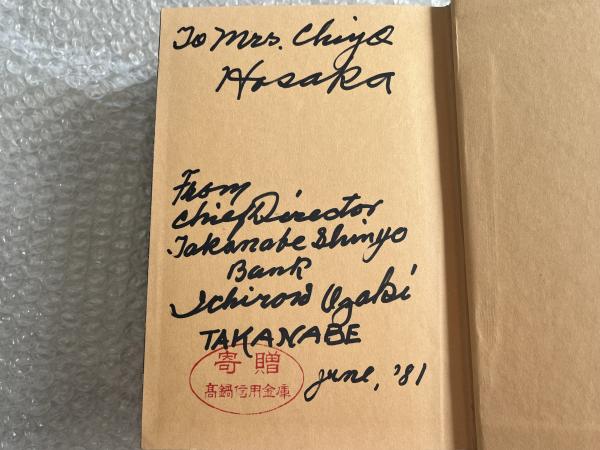 To Mrs. Chiyo
Hosaka
From
Chief Director
Takanabe Shinyo
Bank
Ichirow Ozaki
TAKANABE
寄贈
高鍋信用金庫
June, '81